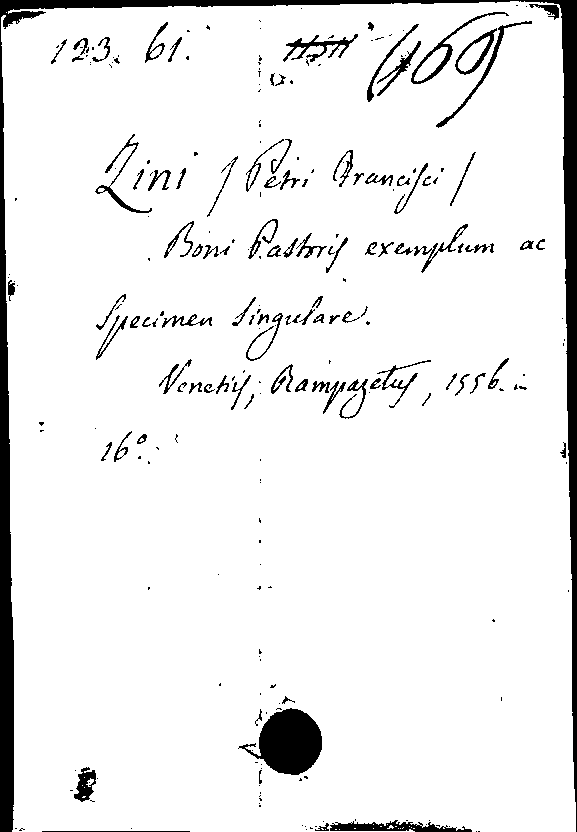 123. 61. (469)
Zini / Petri Francisci /
Boni Pastoris exemplum ac
Specimen singulare.
Venetiis, Rampazetus, 1556. in
16°.